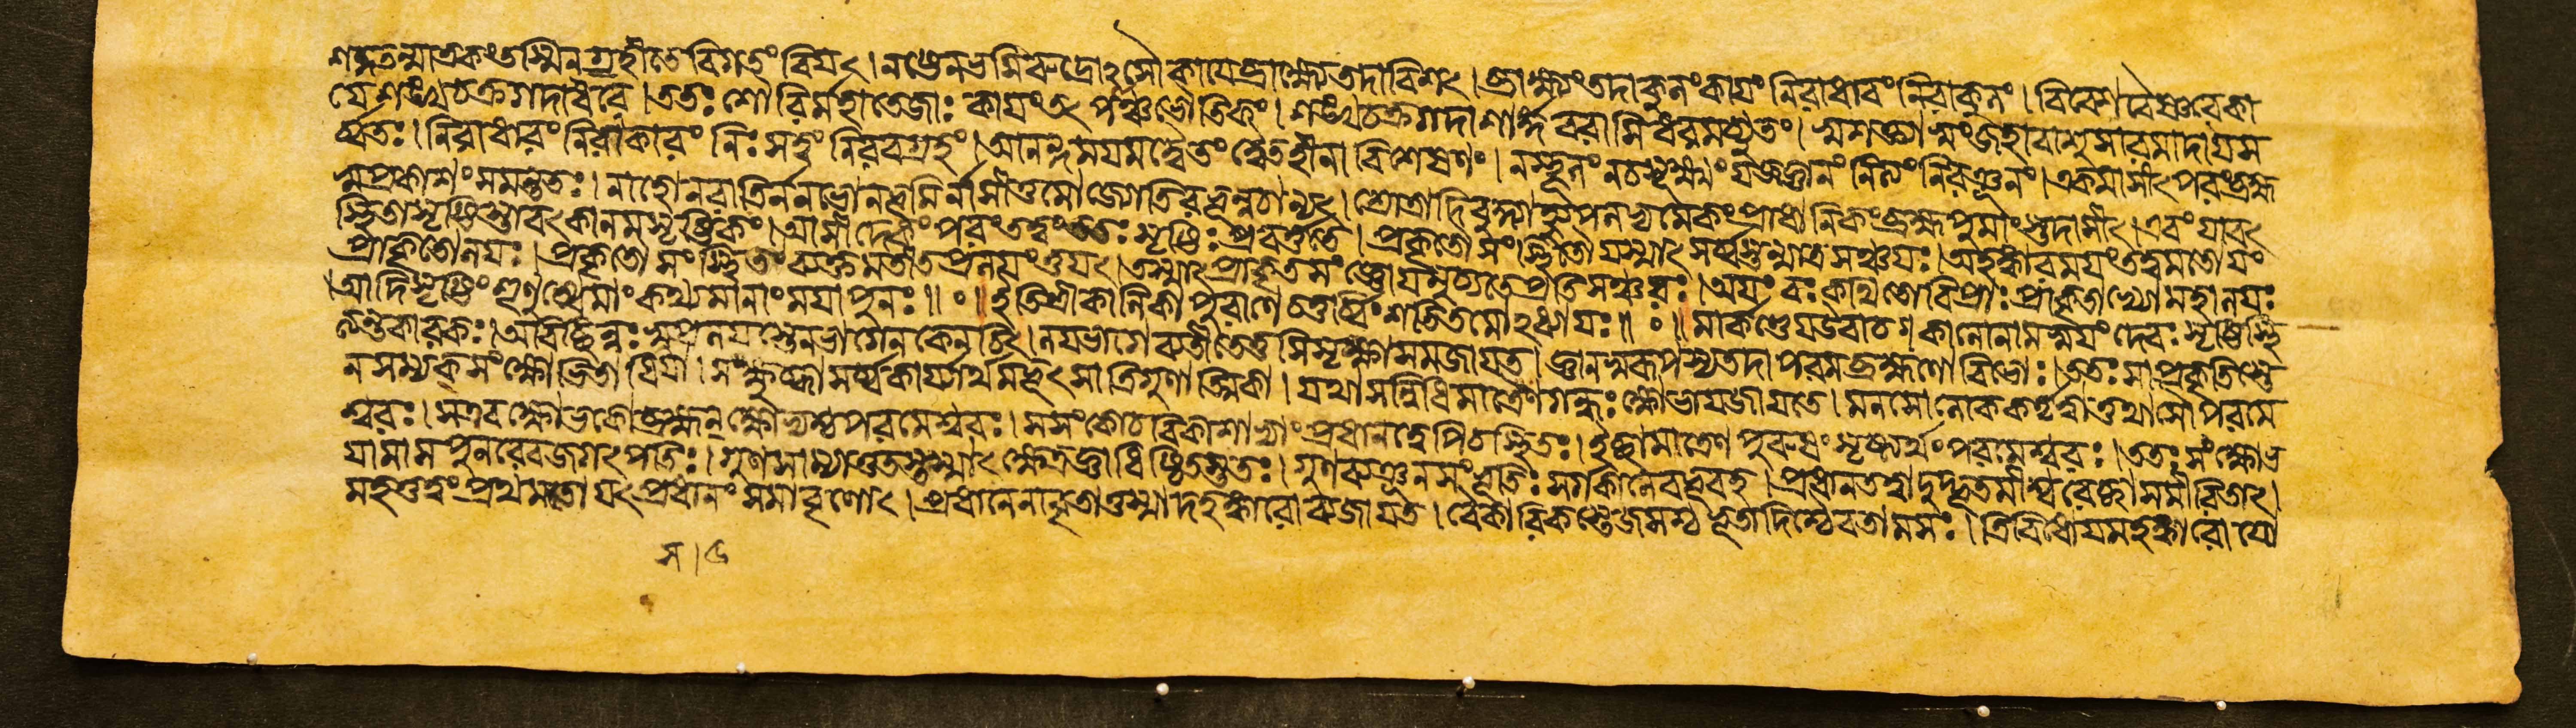 শব্দতন্মাত্রকংতস্মিনগ্রহীতেবিশতংবিযৎ।নষ্টেনভসিৰুদ্রোঽসৌকাযেব্রাহ্ম্যেতদাবিশৎ।ব্রাহ্ম্যংতদাকুলংকাযংনিৰাধাৰংনিৰাকুলং।বিবেশবৈষ্ণবেকা
যেশঙ্খচক্রগদাধৰে।ততঃশৌৰির্ম্মহাতেজাঃকাযংতৎপঞ্চভৌতিকং।শঙ্খচক্রগদাশার্ঙ্গবৰাসিধৰমচ্যুতং।স্বশক্ত্যাসংজহাৰাশুসাৰমাদাযস
র্ব্বতঃ।নিৰাধাৰংনিৰাকাৰংনিঃসত্ত্বংনিৰবগ্রহং।আনন্দমযমদ্বৈতংদ্বৈতহীনাবিশেষণং।নস্থূলংনচসূক্ষ্মংযজ্জ্ঞানংনিত্যংনিৰঞ্জনং।একমাসীৎপৰংব্রহ্ম
স্বপ্রকাশংসমন্ততঃ।নাহোনৰাত্রির্ন্ননভোনভূমির্নাসীত্তমোজ্যোতিৰভূন্নচান্যৎ।শ্রোত্রাদিবুদ্ধ্যাদ্যুপলভ্যমেকংপ্রাধানিকংব্রহ্মপুমাংস্তদাসীৎ।এবংযাবৎ
স্থিতাসৃষ্টিস্তাবৎকালমসৃষ্টিকং।আসীদেকংপৰংতত্ত্বংততঃসৃষ্টিঃপ্রবর্ত্ততে।প্রকৃতৌসংস্থিতোযস্মাৎসর্ব্বতন্মাত্রসঞ্চযঃ।অহঙ্কাৰমযংতত্ত্বমতোযং
প্রাকৃতোলযঃ।প্রকৃতৌসংস্থিতংব্যক্তমতীতপ্রলযংতুযৎ।তস্মাৎপ্রাকৃতসংজ্ঞোযমুচ্যতেপ্রতিসঞ্চৰঃ।অযংবঃকথিতোবিপ্রাঃপ্রাকৃতাখ্যোমহালযঃ
।আদিসৃষ্টিংশৃণুধ্বেমাংকথ্যমানাংমযাপুনঃ॥৹॥ইতিশ্রীকালিকাপুৰাণেচতুর্ব্বিংশতিতমোঽধ্যাযঃ॥৹॥মার্কণ্ডেযউবাচ॥কালোনামস্বযংদেবঃসৃষ্টিস্থি
ত্যন্তকাৰকঃ।অবিচ্ছিন্নঃস্বপ্রলযস্তেনভাগেনকেনচিৎ।লযভাগেব্যতীতেতুসিসৃক্ষাসমজাযত।জ্ঞানস্বৰূপস্যতদাপৰমব্রহ্মণোবিভোঃ।ততঃসাপ্রকৃতিস্তে
নসম্যক্সংক্ষোভিতাধিযা।সংক্ষুব্ধাসর্ব্বকার্য্যার্থমভূৎসাত্রিগুণাত্মিকা।যথাসন্নিধিমাত্রেণগন্ধঃক্ষোভাযজাযতে।মনসোলোককর্ত্তৃত্বাত্তথাসৌপৰমে
শ্বৰঃ।সএবক্ষোভকোব্রহ্মন্ক্ষোভ্যশ্চপৰমেশ্বৰঃ।সসংকোচবিকাশাভ্যাংপ্রধানত্বেপিচস্থিতঃ।ইচ্ছামাত্রেণপুৰুষঃসৃষ্ট্যর্থংপৰমেশ্বৰঃ।ততঃসংক্ষোভ
যামাসপুনৰেবজগৎপতিঃ।গুণসাম্যাত্ততস্তস্মাৎক্ষেত্রজ্ঞাধিষ্ঠিতত্ততঃ।গুণব্যঞ্জনসংভূতিঃসর্গকালেবভূবহ।প্রধানতত্ত্বাদুদ্ভূতমীশ্বৰেচ্ছাসমীৰিতাৎ।
মহত্তত্ত্বংপ্রথমতোযৎপ্রধানংসমাবৃণোৎ।প্রধানেনাবৃতাত্তস্মাদহঙ্কাৰোব্যজাযত।বৈকাৰিকস্তৈজসশ্চভূতাদিশ্চৈবতামসঃ।ত্রিবিধোযমহঙ্কাৰোযো